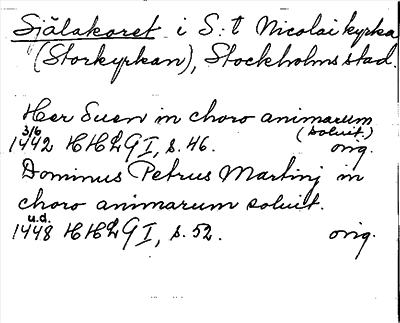 Själakoret i S:t Nicolai kyrka
(Storkyrkan), Stockholms stad.
Her Suen in choro animarum
(soluit.)
1442 3/6 HHLG I, s. 46. orig.
Dominus Petrus Martinj in
choro animarum soluit.
1448 u.d. HHLG I, s. 52. orig.